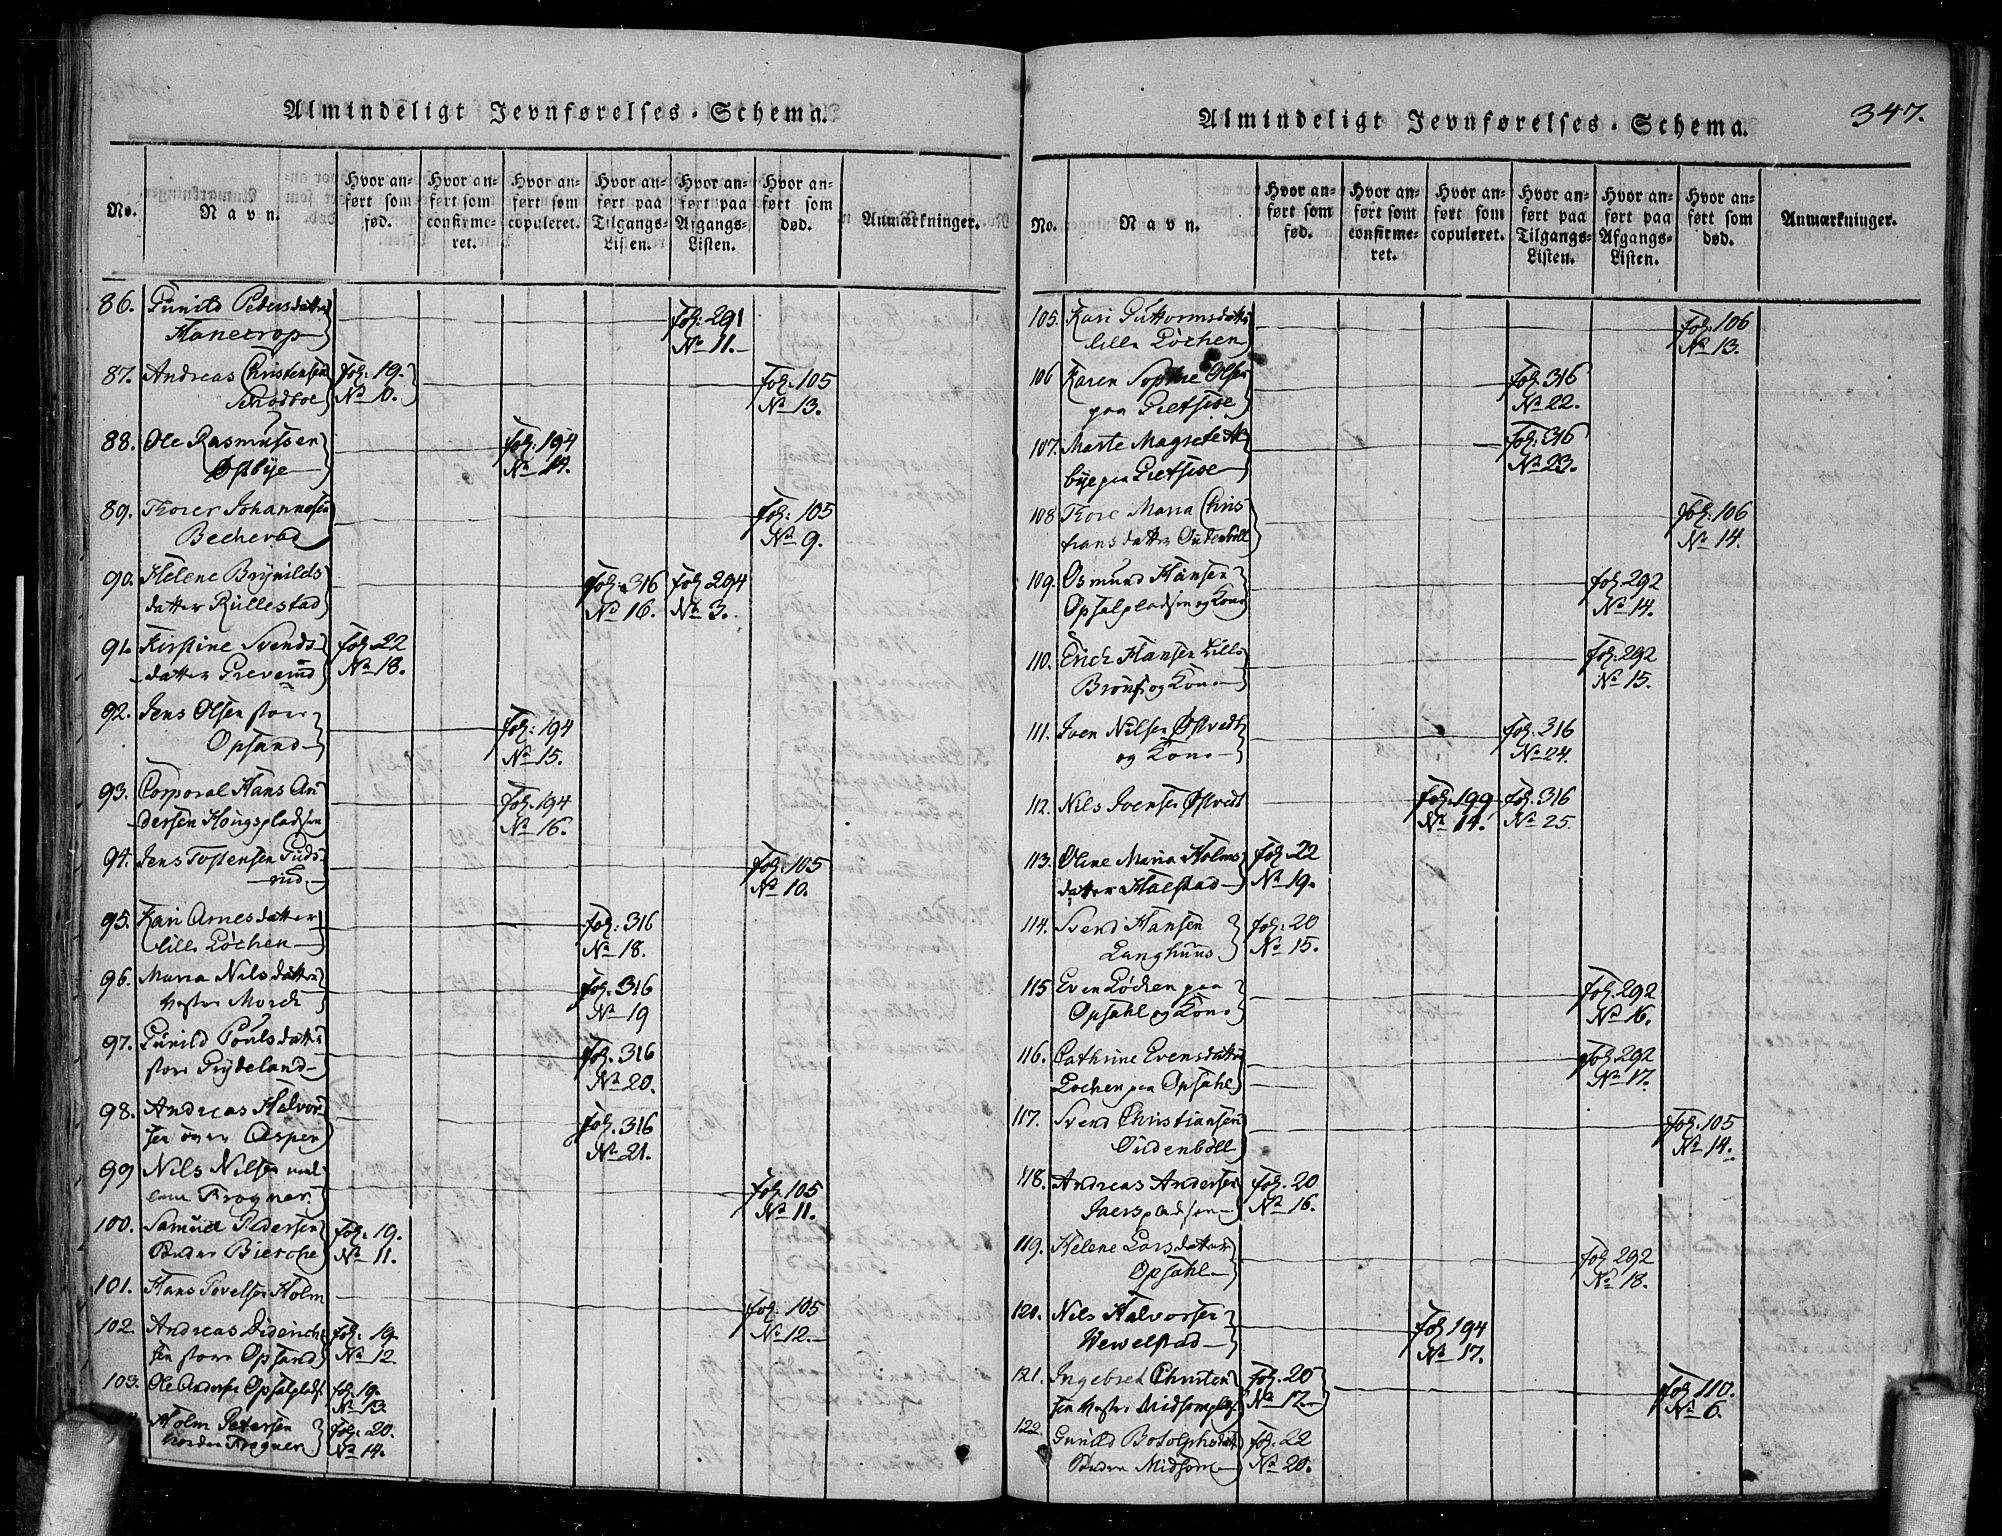 Almindeligt Jevnførelses-Schema.
No.
Navn.
Hvor anført som fød.
Hvor anført som confirmeret.
Hvor anført som copuleret.
Hvor anført paa Tilgangs-Listen.
Hvor anført paa Afgangs-Listen.
Hvor anført som død.
Anmærkninger.
86. Gunild Pedersdatter fol: 291
No 11.
87. Andreas Christensen fol: 19. fol: 105
No 10. No 13.
88. Ole Rasmussen fol: 194
Østbye No 14.
89. Torer Johannesen fol: 105
Becherud No 9.
90. Helene Brynilds fol: 316 fol: 294
datter Rullestad No 16. No 3.
91. Kirstine Svends- fol: 22
datter Greverud No 18.
92. Jens Olsen store fol: 194
Opsand No 15.
93. Corporal Hans An fol: 194
dersen Hougspladsen No 16.
94. Jens Tostensen Guds- fol: 105
rud No 10.
95. Kari Arnesdatter fol: 316
lille Løchen No 18.
96. Maria Nilsdatter fol: 316
Vestre Morch No 19
97. Gunild Poulsdatter fol: 316
store Grydeland No 20.
98. Andreas Halvor fol: 316
sen øvre Aspen No 21.
99 Nils Nilsen mel fol: 105
lem Frogner No 11.
100. Samuel Pedersen fol: 19.
Søndre Bierche No 11.
101. Hans Povelsen Holm fol: 105
No 12.
102. Andreas Diderich fol: 19.
sen store Opsand No 12.
103. Ole Andersen Opsalplads fol: 19.
No 13.
Holm Petersen fol: 20.
Nordre Frogner No 14.
Almindeligt Jevnførelses-Schema.
347.
No.
Navn.
Hvor anført som fød.
Hvor anført som confirmeret.
Hvor anført som copuleret.
Hvor anført paa Tilgangs-Listen.
Hvor anført paa Afgangs-Listen.
Hvor anført som død.
Anmærkninger.
105. Kari Guttormsdatter fol: 106
lille Løchen No 13.
106 Karen Sophie Olsen fol: 316
paa No 22.
107. Marte Magrete fol: 316
bye paa No 23.
108 Tore Maria Chris fol: 106
tiansdatter Oudenbøll No 14.
109. Osmund Hansen fol: 292
Opsalpladsen og Kone No 14.
110. Erich Hansen Lille fol: 292
og Kone No 15.
111. Iven Nilsen Østvedt fol: 316
og Kone No 24.
112. Nils Ivensen Østvedt fol: 199 fol: 316
No 14. No 25.
113. Oline Maria Holms fol: 22
datter Halstad No 19.
114. Svend Hansen fol: 20
Langhuus No 15.
115 Even Løchen paa fol: 292
Opsahl og Kone No 16.
116. Cathrine Evensdatter fol: 292
Løchen paa Opsahl No 17.
117. Svend Christiansen fol: 105
Oudenbøll No 14.
118. Andreas Andersen fol: 20
Jaerspladsen No 16.
119. Helene Larsdatter fol: 292
Opsahl No 18.
120. Nils Halvorsen fol: 194
Wewelstad No 17.
121. Ingebret Christen fol: 20 fol: 110.
sen Vestre No 17. No 6.
122. Gunild Botolphsdatt fol: 22
Søndre Midsom No 20.